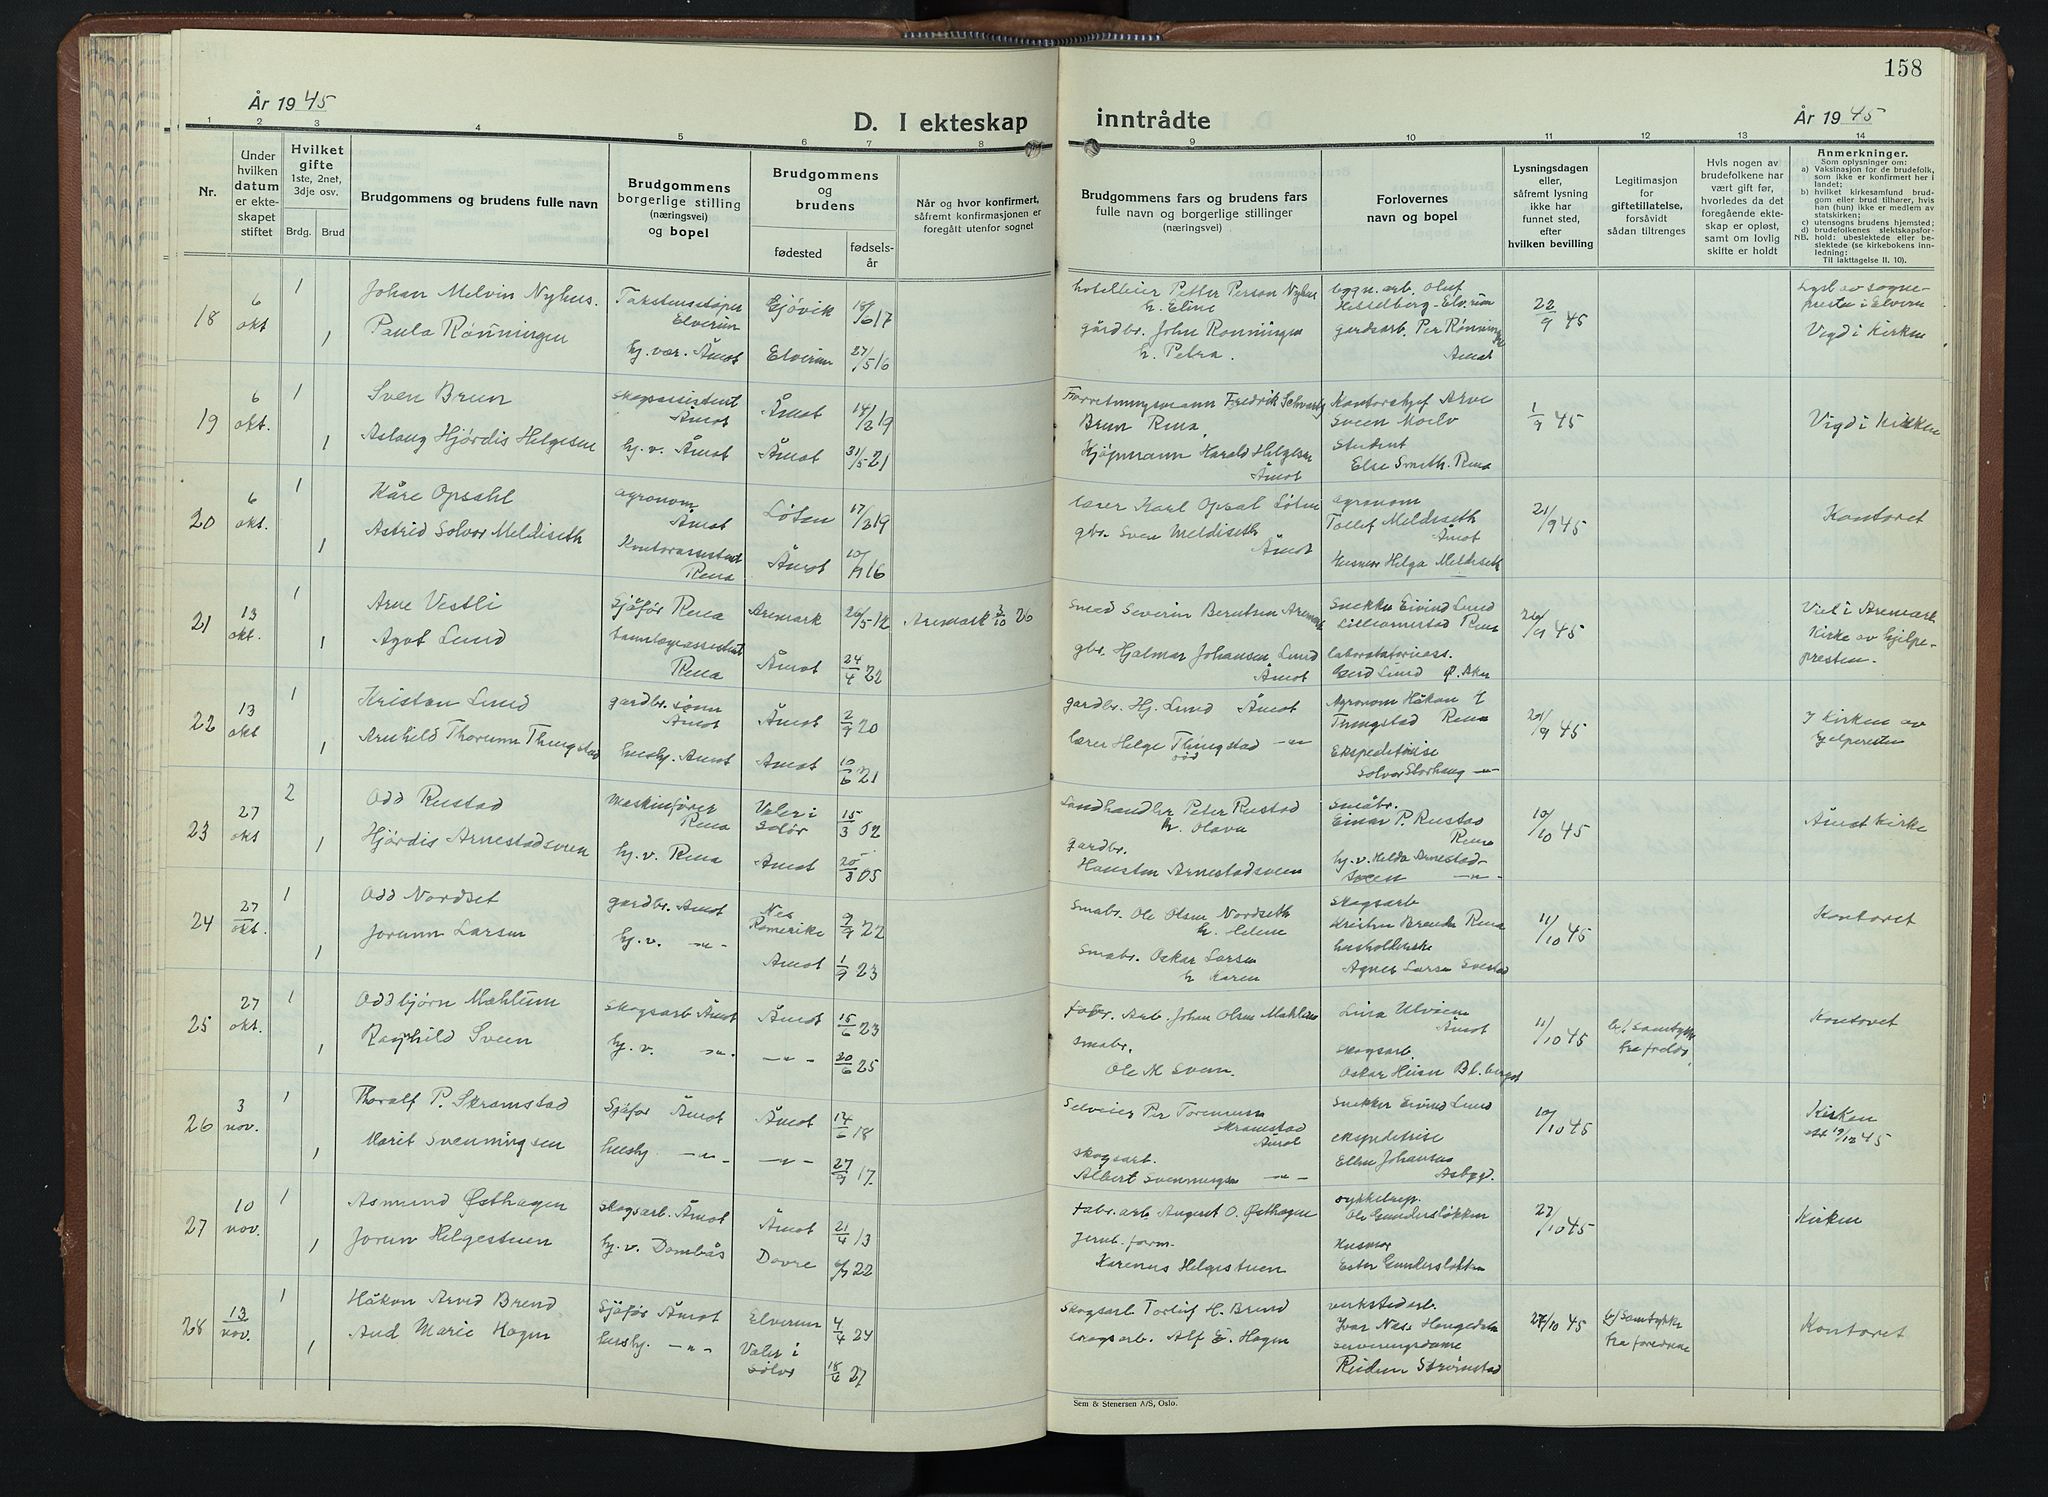 158
År 1945
D. I ekteskap inntrådte
År 1945
1 2 3 4 5 6 7 8 9 10 11 12 13 14
Nr.
Under hvilken datum er ekteskapet stiftet
Hvilket gifte 1ste, 2net, 3dje osv.
Brdg. Brud
Brudgommens og brudens fulle navn
Brudgommens borgerlige stilling (næringsvei) og bopel
Brudgommens og brudens
fødested
fødselsår
Når og hvor konfirmert, såfremt konfirmasjonen er foregått utenfor sognet
Brudgommens fars og brudens fars fulle navn og borgerlige stillinger (næringsvei)
Forlovernes navn og bopel
Lysningsdagen eller, såfremt lysning ikke har funnet sted, efter hvilken bevilling
Legitimasjon for giftetillatelse, forsåvidt sådan tiltrenges
Hvis nogen av brudefolkene har vært gift før, hvorledes da det foregående ekteskap er opløst, samt om lovlig skifte er holdt
Anmerkninger.
Som oplysninger om:
a) Vaksinasjon for de brudefolk, som ikke er konfirmert her i landet;
b) hvilket kirkesamfund brudgom eller brud tilhører, hvis han (hun) ikke er medlem av statskirken;
c) utensogns brudens hjemsted;
d) brudefolkenes slektskapsforhold: ubeslektede eller beslektede (se kirkebokens innledning;
NB. Til iakttagelse II. 10).
18 6 okt 1 Johan Melvin Nyhus. Elverum Gjövik 18/6 17 hotelleier Petter Person Nyhus h. Eline bygn. arb. Oluf Hesselberg - Elverum 22/9 45 Lyst av sogneprest i Elverum
1 Paula Rønningen hj. vær. Åmot Elverum 27/5 16 gårdbr. John Ronningen h. Petra. gardsarb. Per Rønningen Åmot Vigd i Kirken
19 6 okt. 1 Sven Brun skogassistent Åmot Åmot 14/2 19 Forretningsmann Fredrik Brun Rena Kontorsjef Arve Sveen Moelv 1/9 45 Vigd i Kirken
1 Aslaug Hjördis Helgesen hj. v. Åmot Åmot 31/5 21 Kjöpmann Harald Helgesen Åmot Student Else Smith. Rena
20 6 okt. 1 Kåre Opsahl agronom Åmot Löten 17/2 19 lærer Karl Opsal Løten agronom Tollef Meldiseth Åmot 21/9 45 Kontoret
1 Astrid Solvor Meldiseth Rena Åmot 16 gbr. Sven Meldiseth Åmot Husmor Helga Meldiseth
21 13 okt. 1 Arne Vestli Sjåför Rena Aremark 26/5 12 Aremark 3/10 26 Smed Severin Berntsen Aremark Snekker Eivind Lund Rena 26/9 45 Viet i Aremark Kirke av hjelpepresten.
1 Agot Lund tannlegeassistent Rena Åmot 24/4 22 gbr. Hjalmar Johansen Lund Åmot laboratorieass. Gerd Lund
22 13 okt 1 Kristan Lund gardbr. sönn Åmot Åmot 2/9 20 gardbr. Hj. Lund Åmot Agronom Håkon Tungstad Rena 45 I Kirken av hjelpepresten
1 Arnhild Thorunn Thingstad hush. Åmot Åmot 10/6 21 lærer Helge Thingstad -"- Ekspeditrise Solvor Storhaug -"-
23 27 okt 2 Odd Rustad Maskinförer Rena Våler i Solör 15/3 02 Landhandler Peter Rustad h. Olava småbr. Einar P. Rustad Rena 10/10 45 Åmot Kirke
1 Hjørdis Arnestadsveen hj. v. Rena Åmot 25/8 05 gardbr. Arnestadsveen hj. v. Arnestadsveen -"-
24 27 okt. 1 Odd Nordset gardbr. Åmot Nes Romerike 9/9 22 Småbr. Ole Olsen Nordseth h. Helene skogsarb. Rena 11/10 45 Kontoret
1 Jorunn Larsen hj. v. -"- Åmot 1/9 23 Småbr. Oskar Larsen h Karen Agnes Larsen
25 27 okt. 1 Oddbjørn Mæhlum skogsarb Åmot Åmot 15/6 23 fabr. Arb. Johan Olsen Mæhlum Åmot 11/10 45 samtykke Kontoret
1 Ragnhild Sveen hj. v. -"- -"- 20/6 25 småbr. Ole M Sveen. skogsarb. Oskar
26 3 nov. 1 Thoralf P. Skramstad Sjåför Åmot Åmot 14/6 18 Selveier Per Skramstad Åmot Snekker Eivind Lund 10/10 45 Kirken
1 Marit Svenningsen hush. -"- -"- 27/9 17. skogsarb. Albert Svenningsen -"- ekspeditrise Ellen Johansen
27 10 nov. 1 Asmund Østhagen skogsarb. Åmot Åmot 21/4 13 fabr. arb August O. Østhagen 27/10 45 Kirken
1 Jorun Helgestuen hj. v. Dombås Dovre 22 Jernb. form. Karenus Helgestuen Husmor Ester
28 13 nov. 1 Håkon Arvid Brend Sjåför Åmot Elverum 4/4 24 Skogsarb Torleif H. Brend verkstedarb. Ivar 27/10 45 samtykke Kontoret
1 Aud Marie Hagen hush. -"- Våler i Solör 18/6 27 skogsarb. Alf E. Hagen serveringsdame
Sem & Stenersen A/S, Oslo.